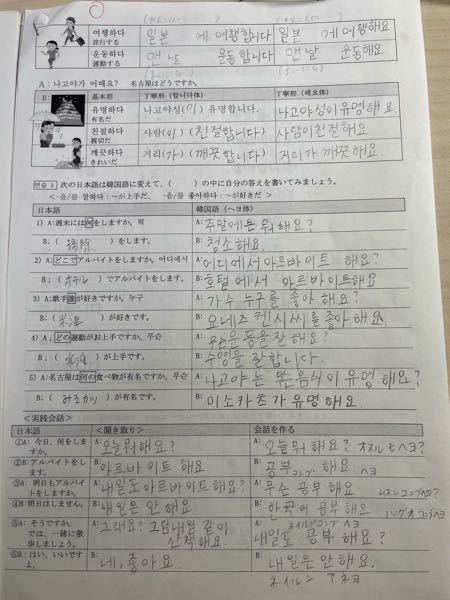 여행하다 일본 에 여행합니다 일본 에 여행해요
旅行する
운동하다 맨날 운동합니다 맨날 운동해요
運動する
A：나고야가 어때요? 名古屋はどうですか。
B: 基本形 丁寧形 (합니다体) 丁寧形 (해요体)
유명하다 나고야성(이) 유명합니다. 나고야성이 유명해요.
有名だ
친절하다 사람(이) (친절합니다) 사람이친절해요
親切だ
깨끗하다 거리(가) (깨끗합니다) 거리가 깨끗해요
きれいだ
연습 3 次の日本語は韓国語に変えて、( )の中に自分の答えを書いてみましょう。
<-을/를 잘하다：～が上手だ、 -을/를 좋아하다：～が好きだ>
日本語 韓国語 (ヘヨ体)
1) A:週末には何をしますか。뭐 A: 주말에는뭐해요?
B：( 掃除 ) をします。 B: 청소해요.
2) A:どこでアルバイトをします。어디에서 A: 어디에서아르바이트 해요?
B：(ホテル) でアルバイトをします。 B: 호텔에서 아르바이트해요
3) A: 歌手誰が好きですか。누구 A: 가수 누구를좋아해요?
B：( 米津 ) が好きです。 B: 요네즈켄시씨를좋아해요
4) A: どの運動がお上手ですか。무슨 A: 운동을잘해요?
B：( 水泳 ) が上手です。 B: 수영을 잘합니다.
5) A: 名古屋は何の食べ物が有名ですか。무슨 A: 나고야는 음식이유명해요?
B：( みそカツ ) が有名です。 B: 미소카츠가유명해요
<実践会話>
日本語 <聞き取り> 会話を作る
①A: 今日、何をしますか。 A: 오늘뭐해요? A: 오늘뭐해요? オヌルモヘヨ?
②B: アルバイトをします。 B: 아르바이트 해요 B: 공부 해요 コンブ ヘヨ
③A: 明日もアルバイトしますか。 A: 내일도아르바이트해요? A: 무슨 공부 해요 ムスンコンブヘヨ?
④B:明日はしません。 B: 내일은 안해요 B: 한국어 공부해요
⑤A: そうですか。では、一緒に散歩しましょう。 A: 그래요? 그럼내일 같이 산책해요. A: 내일도 공부 해요?
⑥B: はい、いいですよ。 B: 네, 좋아요. B: 내일은안해요.
ネイルン アネヨ